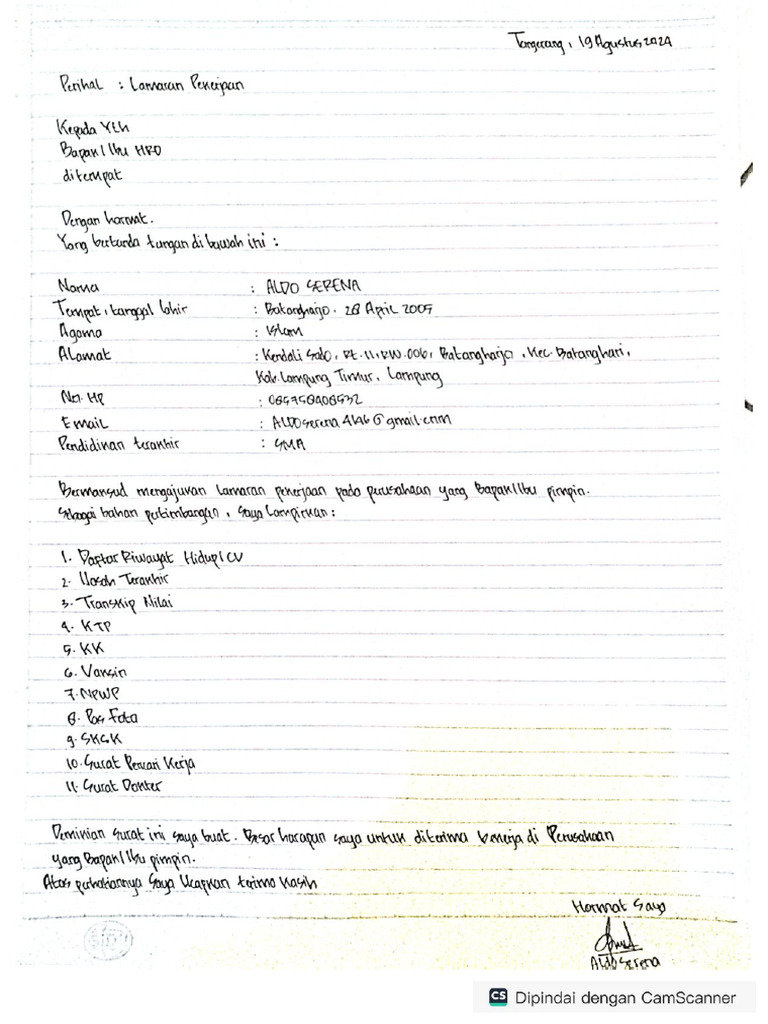 Tangerang, 19 Agustus 2024
Perihal : Lamaran Pekerjaan
Kepada Yth
Bapak/Ibu HRD
ditempat
Dengan hormat.
Yang bertanda tangan di bawah ini :
Nama : ALDO SERENA
Tempat, tanggal lahir : Batangharjo, 28 April 2005
Agama : Islam
Alamat : Kendali Sodo, Rt.11, RW.006, Batangharjo, Kec. Batanghari,
Kab. Lampung Timur, Lampung
No. HP : 085758908532
Email : @gmail.com
Pendidikan terakhir : SMA
Bermaksud mengajukan lamaran pekerjaan pada perusahaan yang Bapak/Ibu pimpin.
Sebagai bahan pertimbangan, saya lampirkan :
1. Daftar Riwayat Hidup/CV
2. Ijasah Terakhir
3. Transkip Nilai
4. KTP
5. KK
6. Vaksin
7. NPWP
8. Pas Foto
9. SKCK
10. Surat Pencari Kerja
11. Surat Dokter
Demikian surat ini saya buat. Besar harapan saya untuk diterima bekerja di Perusahaan
yang Bapak/Ibu pimpin.
Atas perhatiannya Saya Ucapkan terima kasih
Hormat Saya
Aldo Serena
CS Dipindai dengan CamScanner